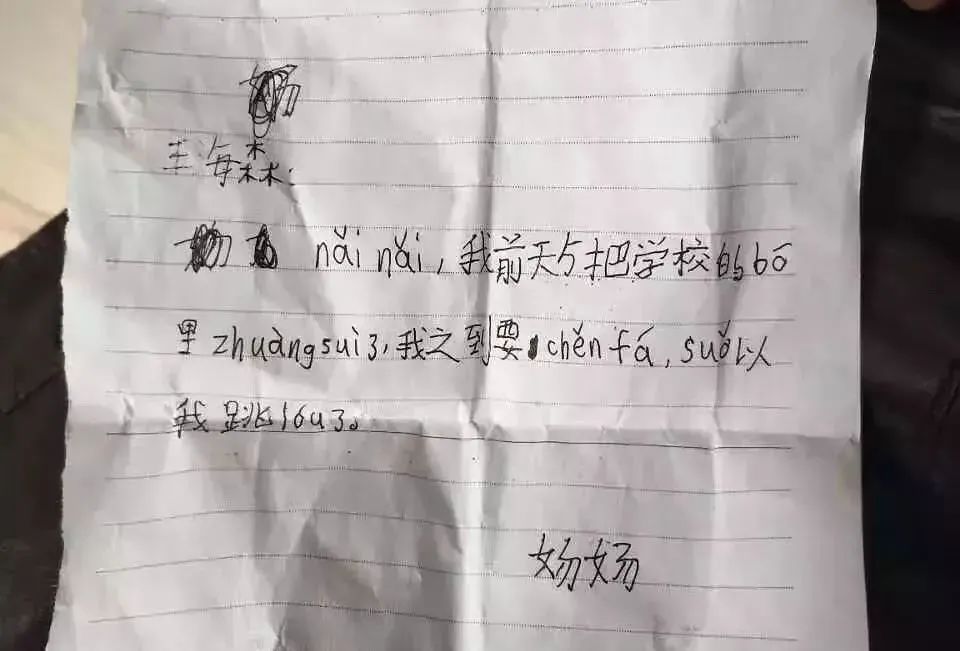 nǎi nǎi,我前天把学校的bō
里zhuàngsui了,我之到要chěnfá,suǒ以
我跳lóu了。